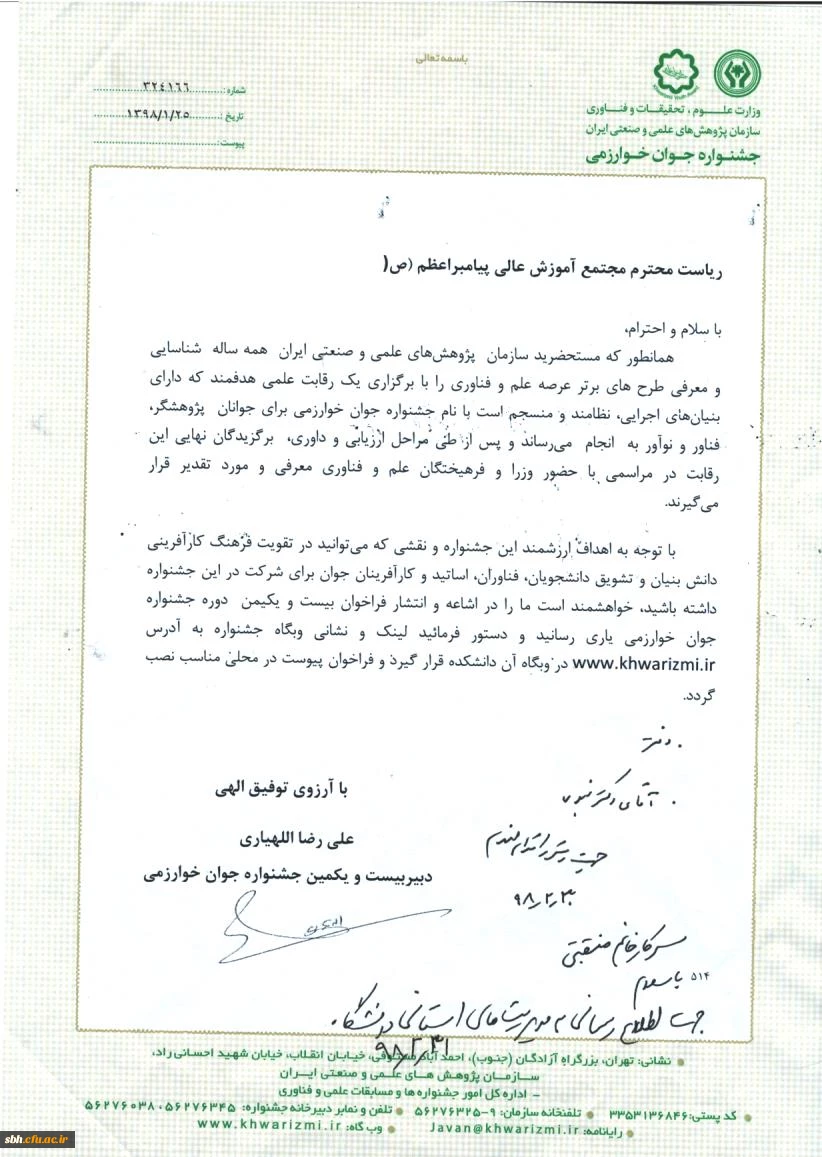 باسمه‌تعالی
وزارت علوم، تحقیقات و فناوری
سازمان پژوهش‌های علمی و صنعتی ایران
جشنواره جوان خوارزمی
شماره: ۳۲۴۱۶۶
تاریخ: ۱۳۹۸/۱/۲۵
پیوست:
ریاست محترم مجتمع آموزش عالی پیامبراعظم (ص(
با سلام و احترام،
همانطور که مستحضرید سازمان پژوهش‌های علمی و صنعتی ایران همه ساله شناسایی
و معرفی طرح های برتر عرصه علم و فناوری را با برگزاری یک رقابت علمی هدفمند که دارای
بنیان‌های اجرایی، نظامند و منسجم است با نام جشنواره جوان خوارزمی برای جوانان پژوهشگر،
فناور و نوآور به انجام می‌رساند و پس از طی مراحل ارزیابی و داوری، برگزیدگان نهایی این
رقابت در مراسمی با حضور وزرا و فرهیختگان علم و فناوری معرفی و مورد تقدیر قرار
می‌گیرند.
با توجه به اهداف ارزشمند این جشنواره و نقشی که می‌توانید در تقویت فرهنگ کارآفرینی
دانش بنیان و تشویق دانشجویان، فناوران، اساتید و کارآفرینان جوان برای شرکت در این جشنواره
داشته باشید، خواهشمند است ما را در اشاعه و انتشار فراخوان بیست و یکیمن دوره جشنواره
جوان خوارزمی یاری رسانید و دستور فرمائید لینک و نشانی وبگاه جشنواره به آدرس
www.khwarizmi.ir در وبگاه آن دانشکده قرار گیرد و فراخوان پیوست در محلی مناسب نصب
گردد.
با آرزوی توفیق الهی
علی رضا اللهیاری
دبیربیست و یکمین جشنواره جوان خوارزمی
آقای دکتر
۹۸٫۲٫۳۰
سرکار خانم منقبتی
۵۱۴ با سلام
جهت اطلاع رسانی به مدیریت های استانی دانشگاه.
۹۸٫۲٫۳۱
نشانی: تهران، بزرگراه آزادگان (جنوب)، احمد آباد مستوفی، خیابان انقلاب، خیابان شهید احسانی راد،
سازمان پژوهش های علمی و صنعتی ایران
– اداره کل امور جشنواره ها و مسابقات علمی و فناوری
کد پستی: ۳۳۵۳۱۳۶۸۴۶ تلفنخانه سازمان: ۹-۵۶۲۷۶۳۲۵ تلفن و نمابر دبیرخانه جشنواره: ۵۶۲۷۶۰۳۸ ، ۵۶۲۷۶۳۴۵
رایانامه: Javan@khwarizmi.ir وب گاه: www.khwarizmi.ir
sbh.cfu.ac.ir